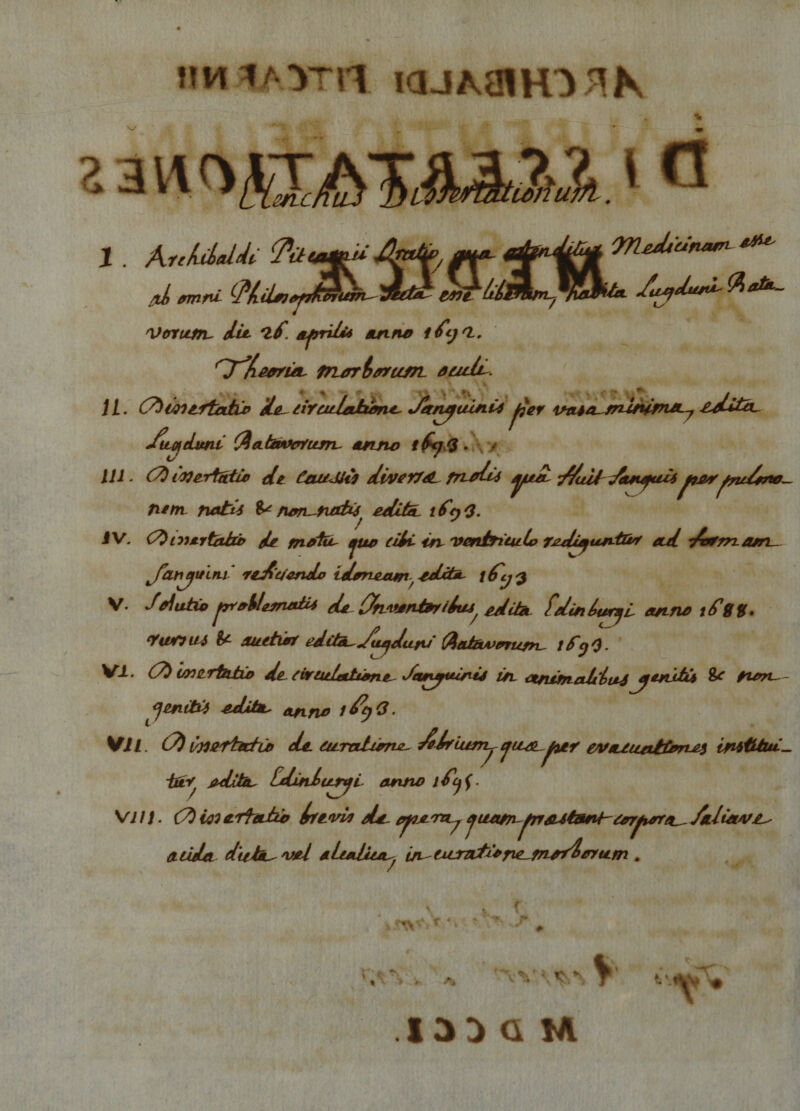 ARCHIBALDI PITCARNII
DISSERTATIONES
Elenchus Dissertationum.
MEDICÆ
I. Archibaldi Pitcarnii Oratio, qua ostenditur Medicinam esse
ab omni Philosophorum Secta esse liberam, habita Lugduni Bata-
vorum die 26. aprilis anno 1692.
Theoria morborum oculi.
II. Dissertatio de circulatione Sanguinis per vasa minima, edita
Lugduni Batavorum anno 1693.
III. Dissertatio de Caussis diversæ molis quâ fluit Sanguis per pulmo-
nem natis & non natis, edita 1693.
IV. Dissertatio de motu quo cibi in ventriculo rediguntur ad formam
Sanguini reficiendo idoneam, edita 1693
V. Solutio problematis de Inventoribus, edita Edinburgi anno 1688.
rursus & auctior edita Lugduni Batavorum 1693.
VI. Dissertatio de circulatione Sanguinis in animalibus genitis & non
genitis edita anno 1693.
VII. Dissertatio de curatione febrium, quæ per evacuationes institui-
tur, edita Edinburgi anno 1695.
VIII. Dissertatio brevis de opera, quam præstant corpora Saliave
acida dicta vel alcalica, in curatione morborum.
MDCCI.